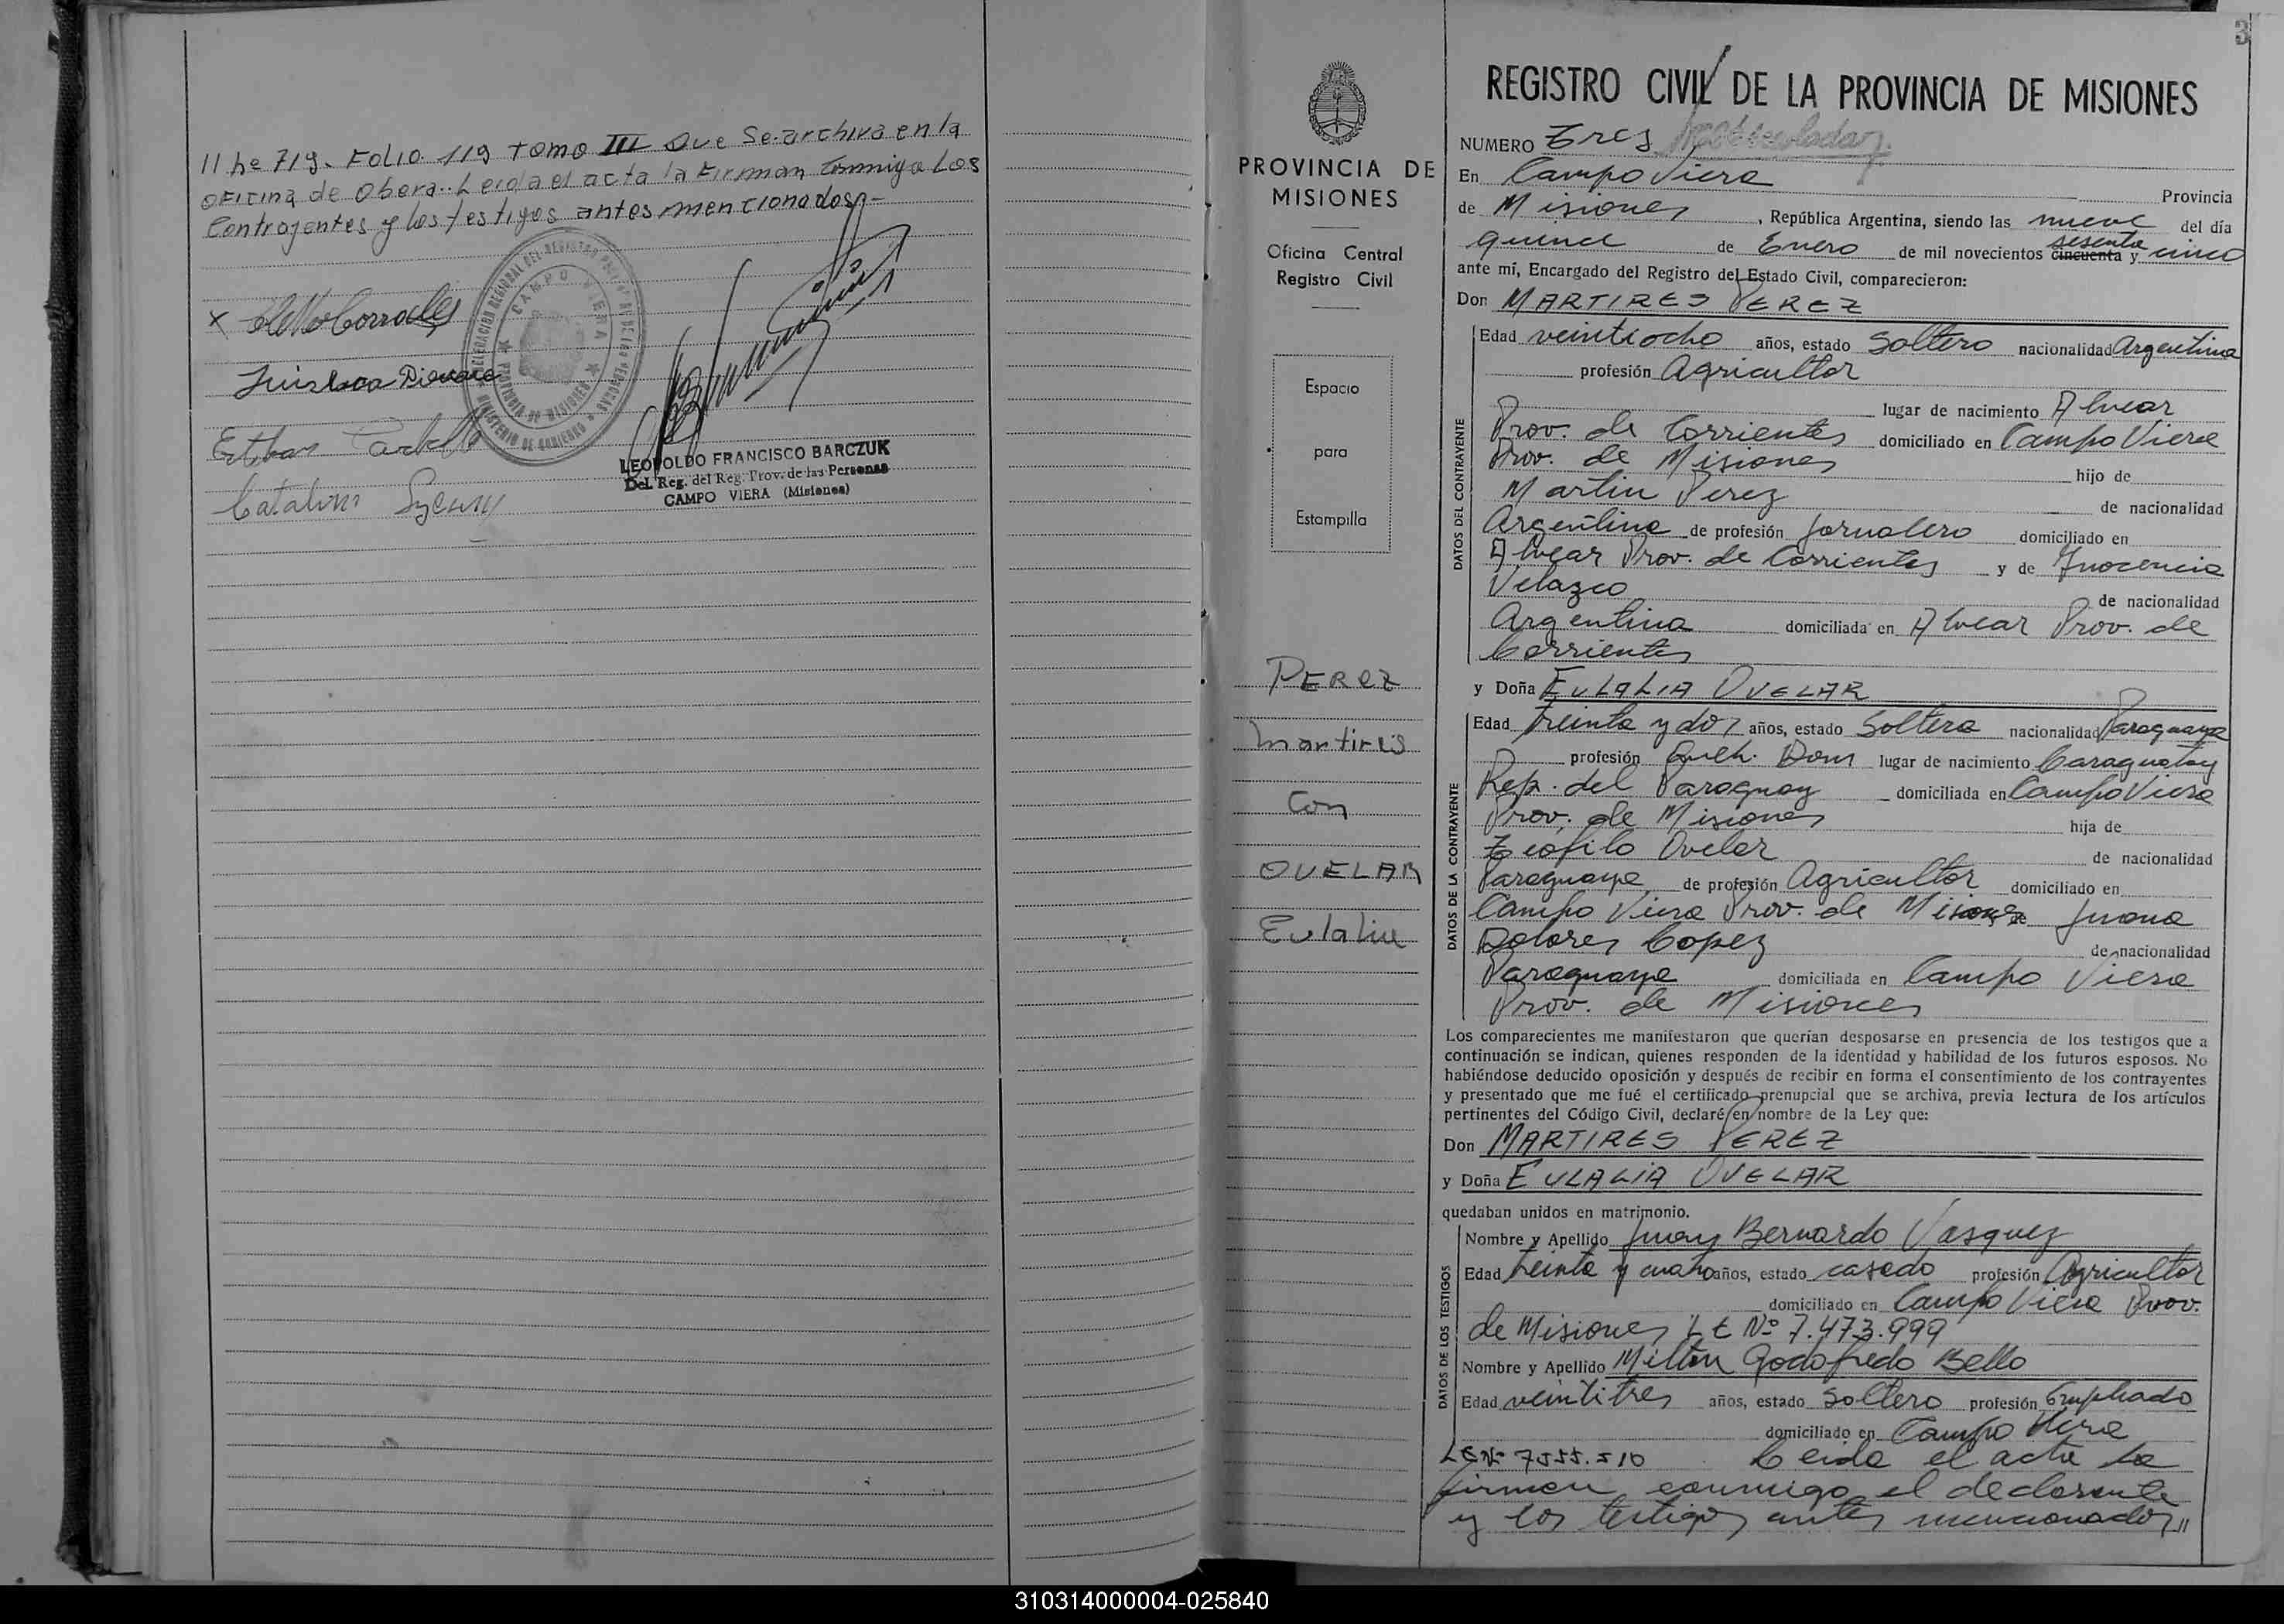 11 he 719. Folio 119 tomo III Que Se archiva en la
oficina de Obera. Leida el acta la Firman Conmigo Los
Contrayentes y los testigos antes mencionados
DELEGACION REGIONAL DEL REGISTRO
CAMPO VIERA
PROVINCIA DE MISIONES
MINISTERIO DE GOBIERNO
LEOPOLDO FRANCISCO BARCZUK
Del. Reg. del Reg. Prov. de las Personas
CAMPO VIERA (Misiones)
3
PROVINCIA DE
MISIONES
Oficina Central
Registro Civil
Espacio
para
Estampilla
PEREZ
Martires
Con
OVELAR
Eulalia
REGISTRO CIVIL DE LA PROVINCIA DE MISIONES
NUMERO Tres
En Campo Viera Provincia
de Misiones, República Argentina, siendo las nueve del día
quince de Enero de mil novecientos cincuenta sesenta y cinco
ante mí, Encargado del Registro del Estado Civil, comparecieron:
Don MARTIRES PEREZ
DATOS DEL CONTRAYENTE
Edad veintiocho años, estado Soltero nacionalidad Argentina
profesión Agricultor
lugar de nacimiento Alvear
Prov. de Corrientes domiciliado en Campo Viera
Prov. de Misiones hijo de
Martin Perez de nacionalidad
Argentina de profesión Jornalero domiciliado en
Alvear Prov. de Corrientes y de Inocencia
Velazco de nacionalidad
Argentina domiciliada en Alvear Prov. de
Corrientes
y Doña EULALIA OVELAR
DATOS DE LA CONTRAYENTE
Edad treinta y dos años, estado Soltera nacionalidad Paraguaya
profesión Queh. Dom lugar de nacimiento Caraguatay
Rep. del Paraguay domiciliada en Campo Viera
Prov. de Misiones hija de
Teofilo Ovelar de nacionalidad
Paraguaya de profesión Agricultor domiciliado en
Campo Viera Prov. de Misiones y de Juana
Dolores Lopez de nacionalidad
Paraguaya domiciliada en Campo Viera
Prov. de Misiones
Los comparecientes me manifestaron que querían desposarse en presencia de los testigos que a
continuación se indican, quienes responden de la identidad y habilidad de los futuros esposos. No
habiéndose deducido oposición y después de recibir en forma el consentimiento de los contrayentes
y presentado que me fué el certificado prenupcial que se archiva, previa lectura de los artículos
pertinentes del Código Civil, declaré en nombre de la Ley que:
Don MARTIRES PEREZ
y Doña EULALIA OVELAR
quedaban unidos en matrimonio.
DATOS DE LOS TESTIGOS
Nombre y Apellido Juan Bernardo Vasquez
Edad treinta y cuatro años, estado casado profesión Agricultor
domiciliado en Campo Viera Prov.
de Misiones LE Nº 7.473.999
Nombre y Apellido Milton Godofredo Bello
Edad veintitres años, estado Soltero profesión Empleado
domiciliado en Campo Viera
LE Nº 7555.510 Leida el acta la
firman conmigo el declarante
y los testigos antes mencionados //
310314000004-025840